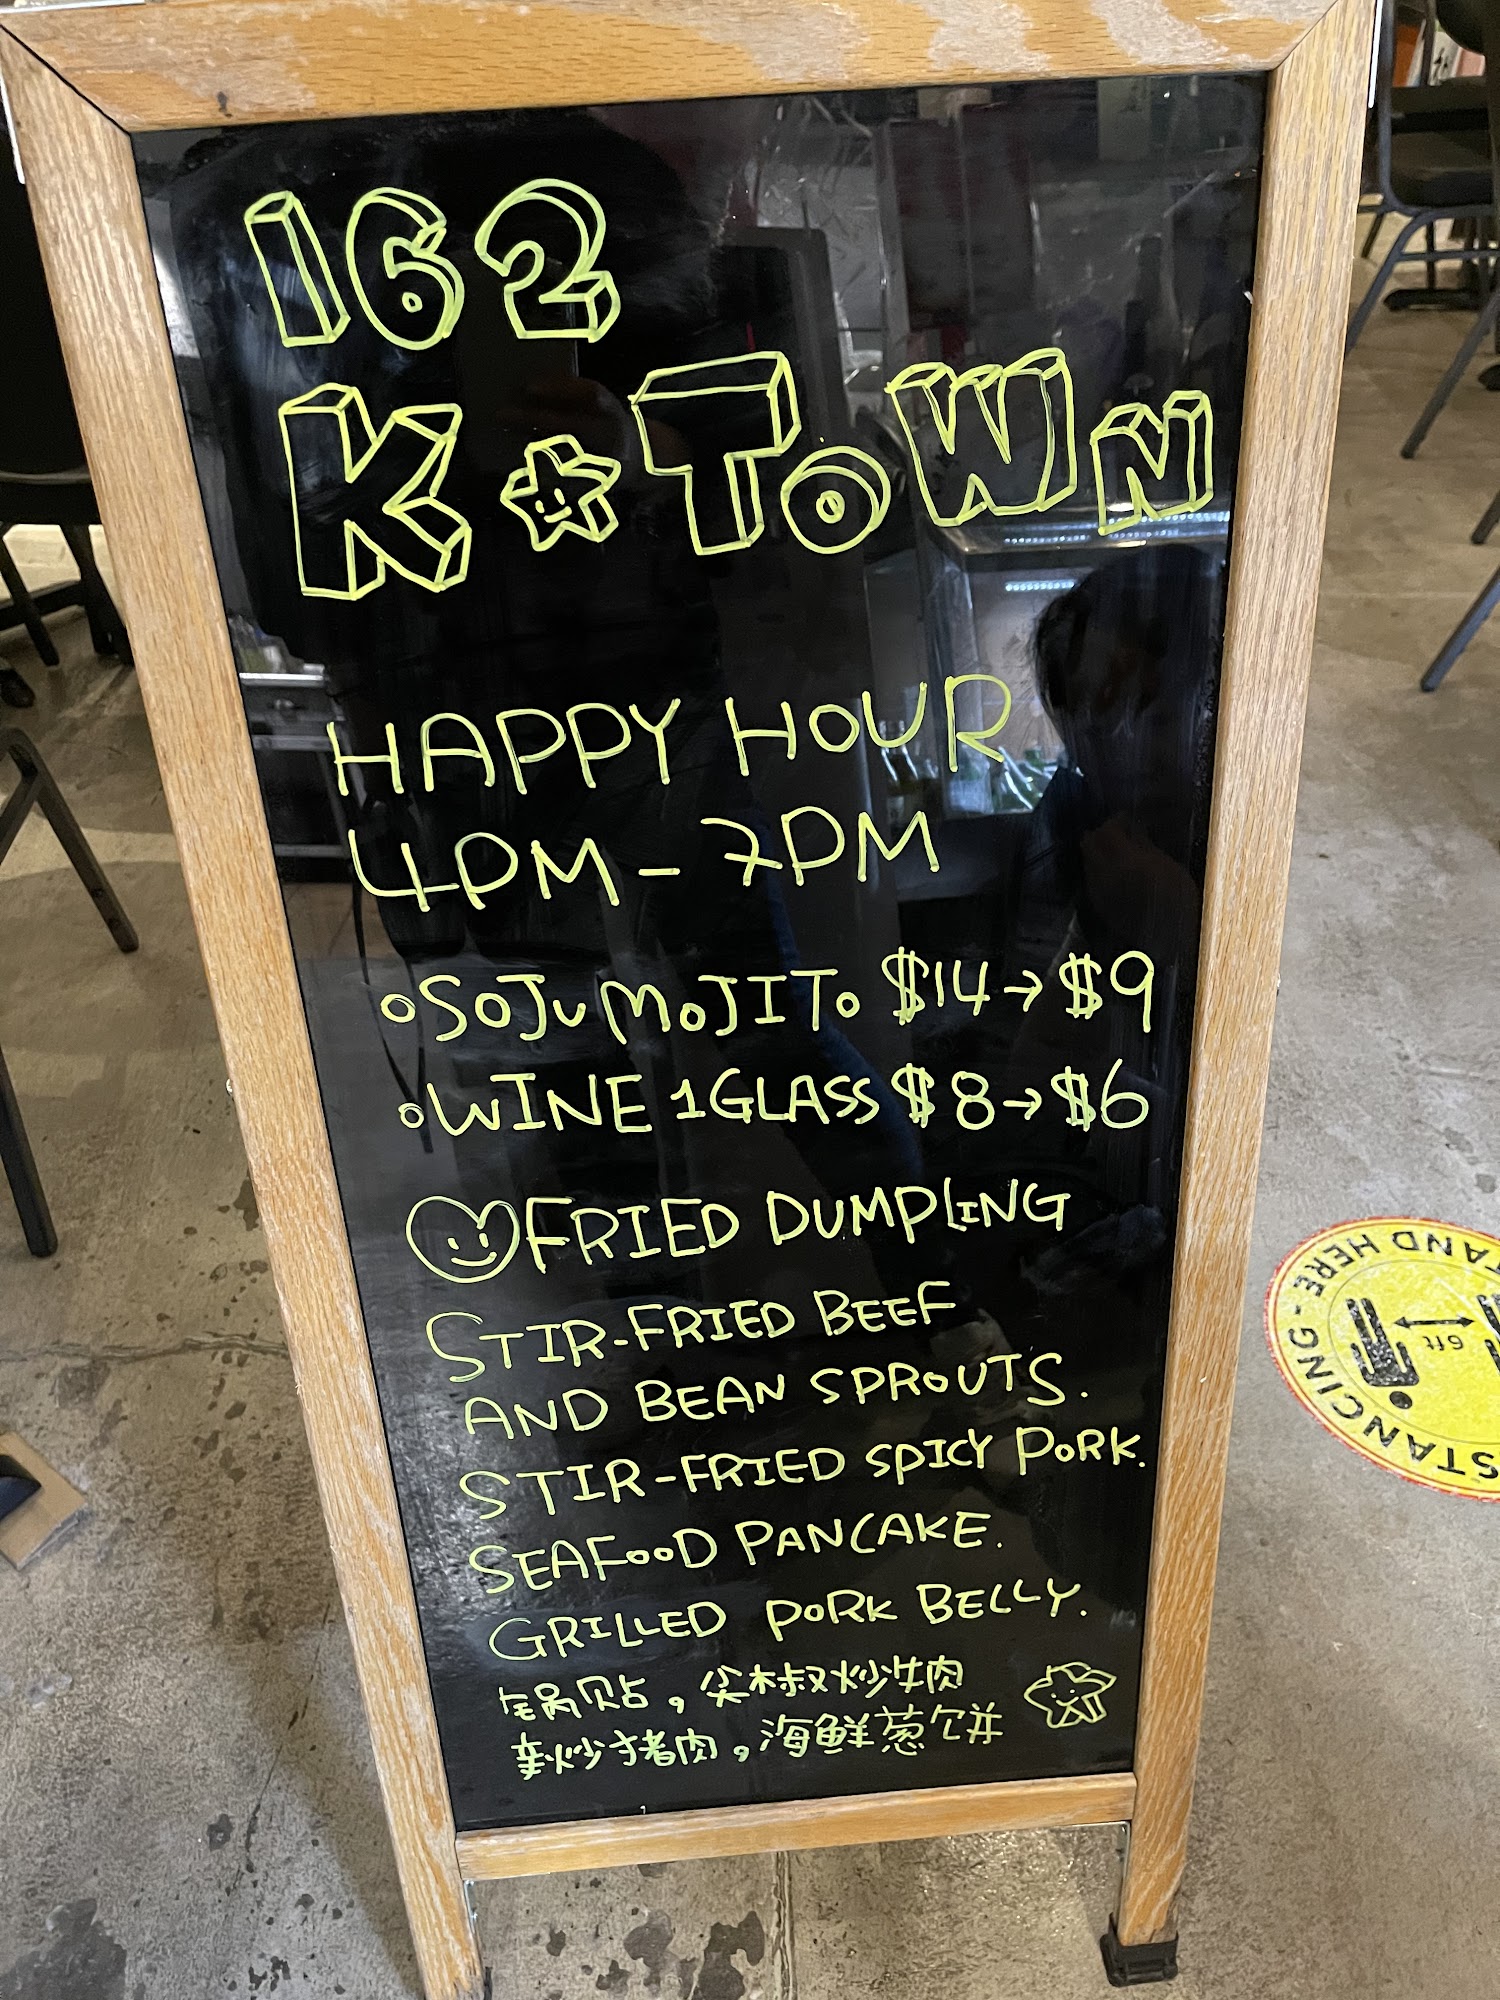 162
K TOWN
HAPPY HOUR
4PM - 7PM
SOJU MOJITO $14→$9
WINE 1GLASS $8→$6
FRIED DUMPLING
STIR-FRIED BEEF
AND BEAN SPROUTS.
STIR-FRIED SPICY PORK.
SEAFOOD PANCAKE.
GRILLED PORK BELLY.
锅贴，尖椒炒牛肉
辣炒猪肉，海鲜葱饼
STANCING - STAND HERE
6ft